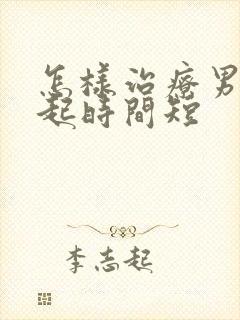 怎樣治療男
起時間短
李志起